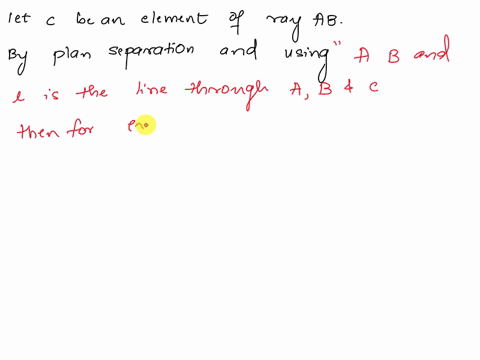 let c be an element of ray AB.
By plan separation and using " A B and
l is the line through A, B & C
then for